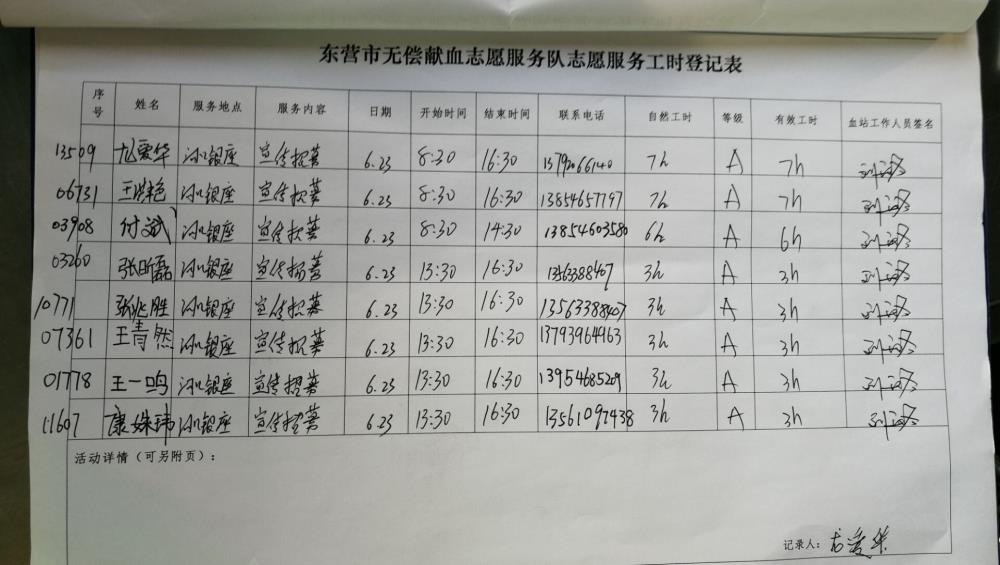 东营市无偿献血志愿服务队志愿服务工时登记表
序号 姓名 服务地点 服务内容 日期 开始时间 结束时间 联系电话 自然工时 等级 有效工时 血站工作人员签名
13509 爱华 银座 宣传招募 6.23 8:30 16:30 13792066140 7h A 7h
06731 王洪艳 银座 宣传招募 6.23 8:30 16:30 13854657797 7h A 7h
03908 付斌 银座 宣传招募 6.23 8:30 14:30 13854603580 6h A 6h
03260 张昕磊 银座 宣传招募 6.23 13:30 16:30 13563388407 3h A 3h
10771 张兆胜 银座 宣传招募 6.23 13:30 16:30 13563388407 3h A 3h
07361 王青然 银座 宣传招募 6.23 13:30 16:30 13793964963 3h A 3h
01778 王一鸣 银座 宣传招募 6.23 13:30 16:30 13954685209 3h A 3h
11607 康姝玮 银座 宣传招募 6.23 13:30 16:30 13561097438 3h A 3h
活动详情（可另附页）：
记录人： 爱华